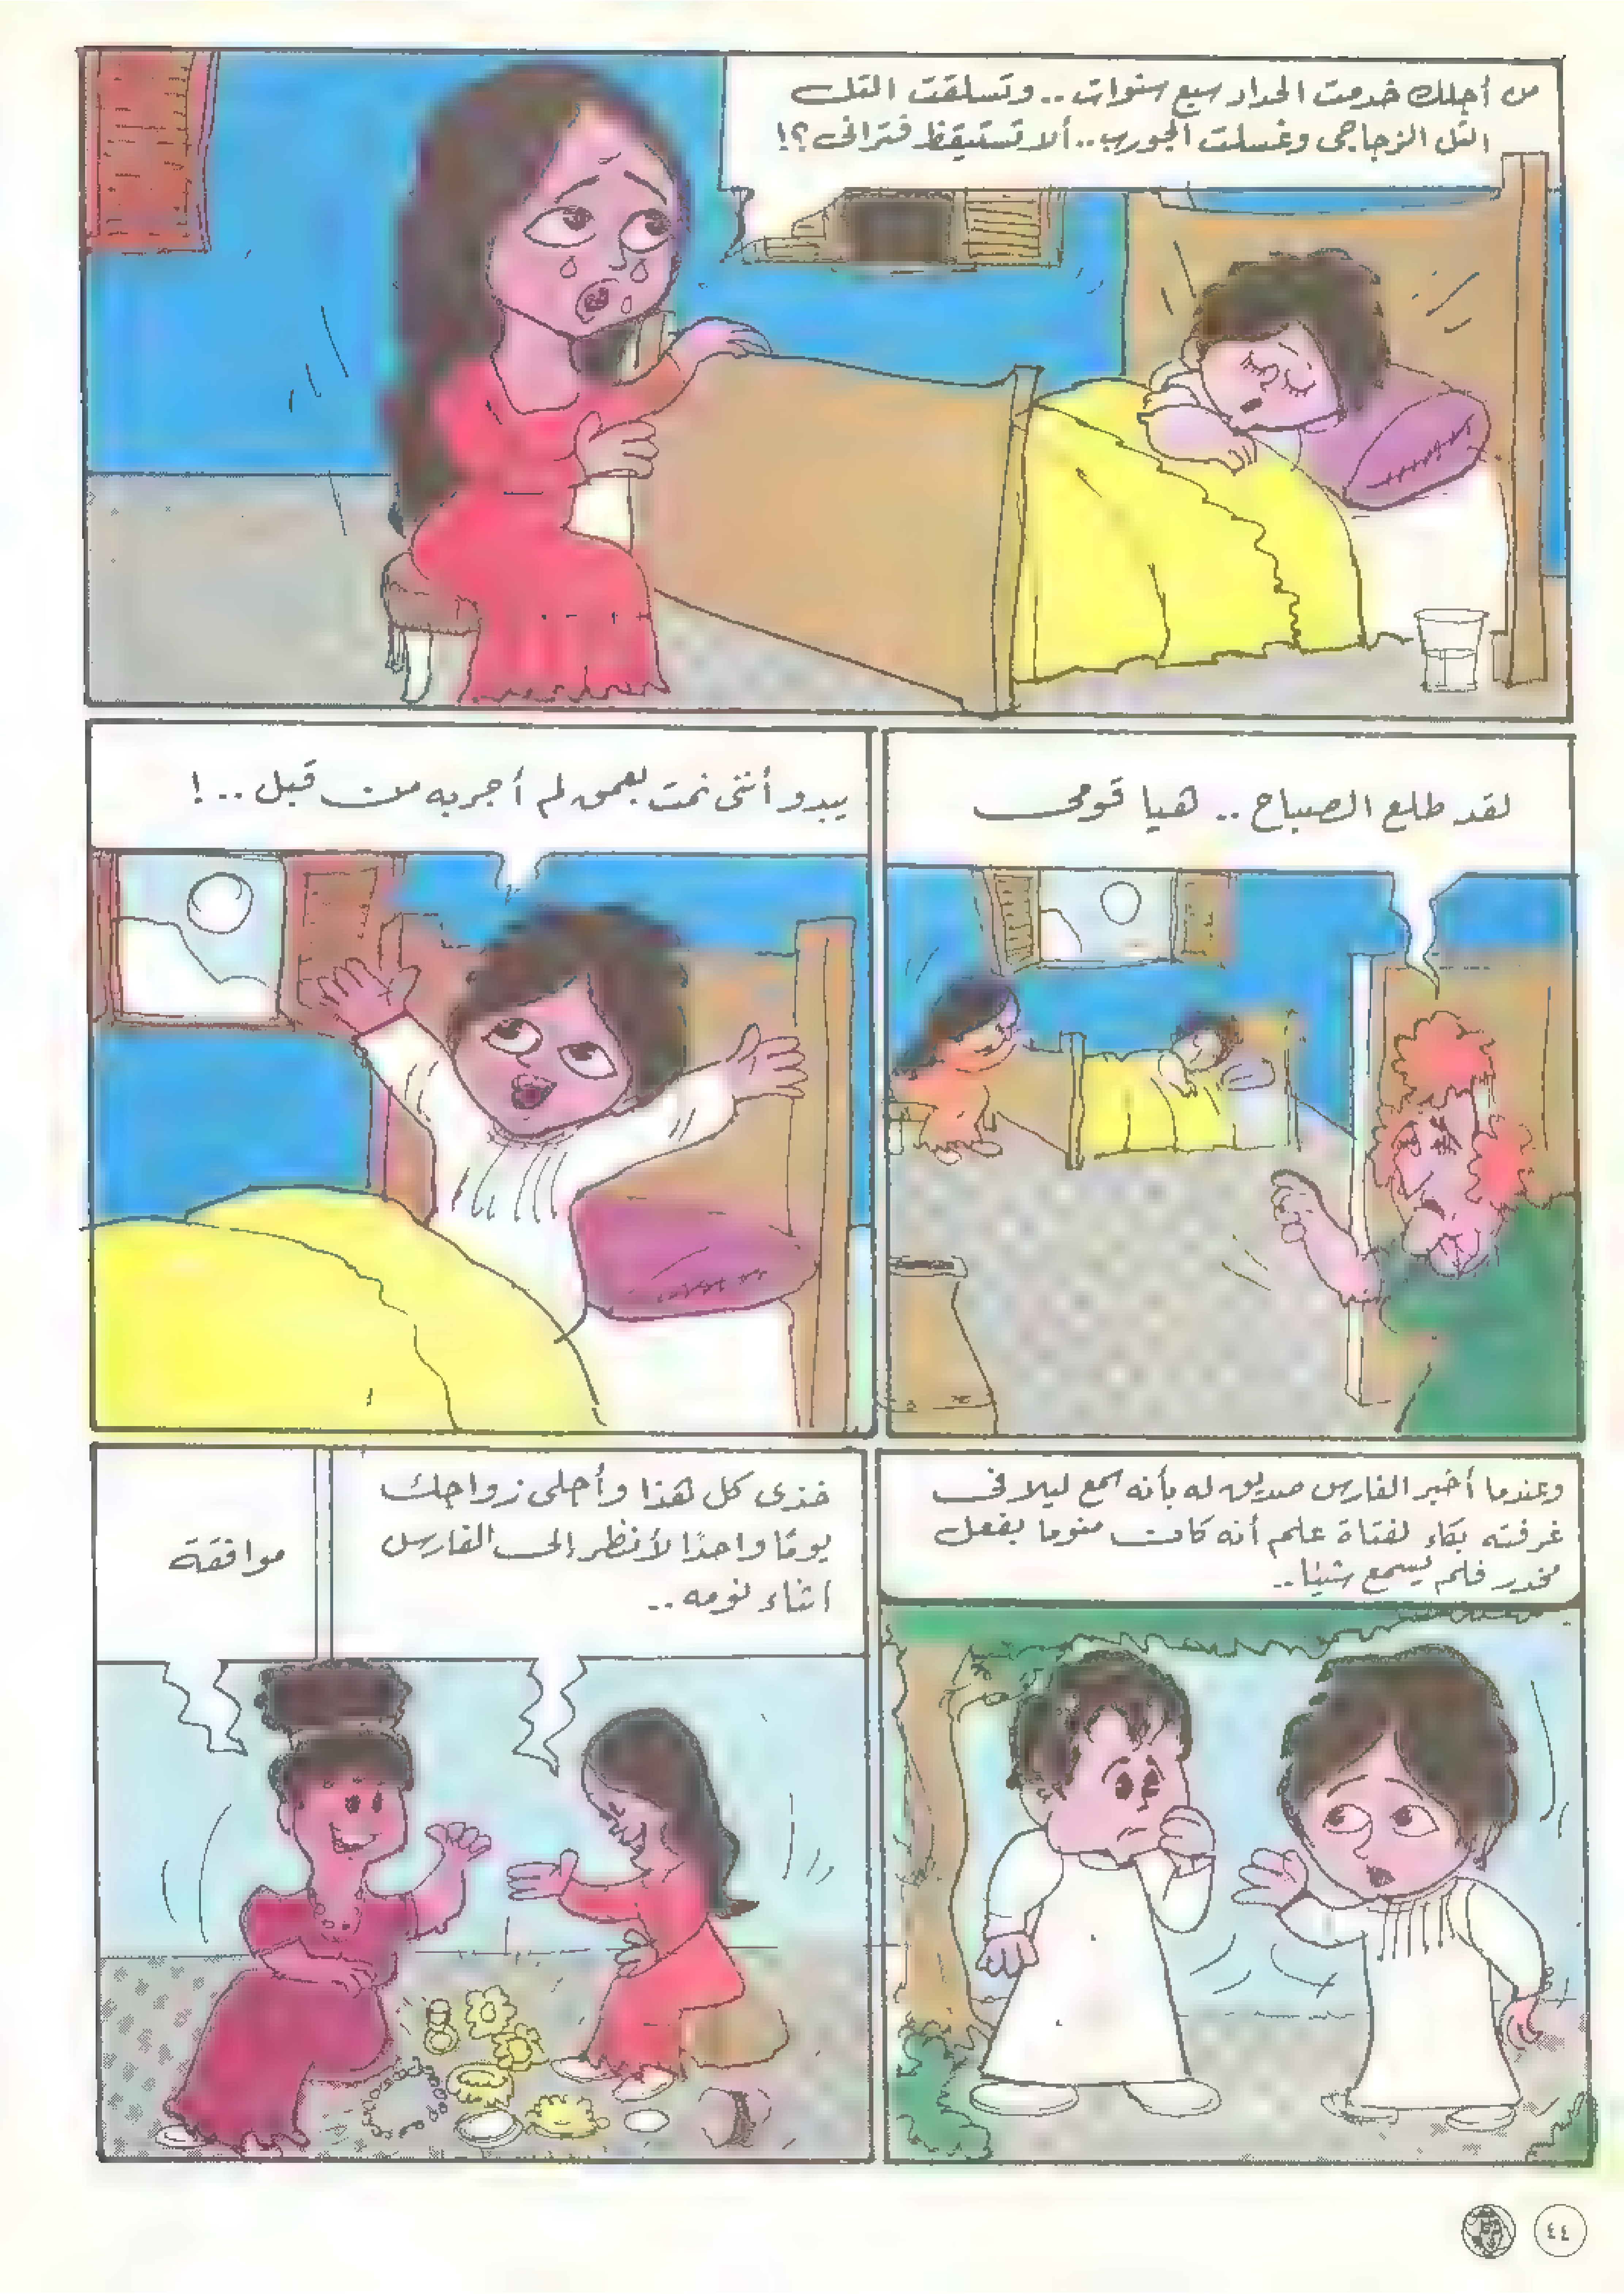 من أجلك خدمت الحداد سبع سنوات.. وتسلقت التل
التل الزجاجى وغسلت الجورب.. ألا تستيقظ فترانى؟!
لقد طلع الصباح.. هيا قومى
يبدو أننى نمت بعمق لم أجربه من قبل..!
وعندما أخبر الفارس صديق له بأنه سمع ليلا فى
غرفته بكاء لفتاة علم أنه كان منوما بفعل
مخدر فلم يسمع شيئا..
خذى كل هذا وأجلى زواجك
يومًا واحدًا لأنظر إلى الفارس
اثناء نومه..
موافقة
٤٤